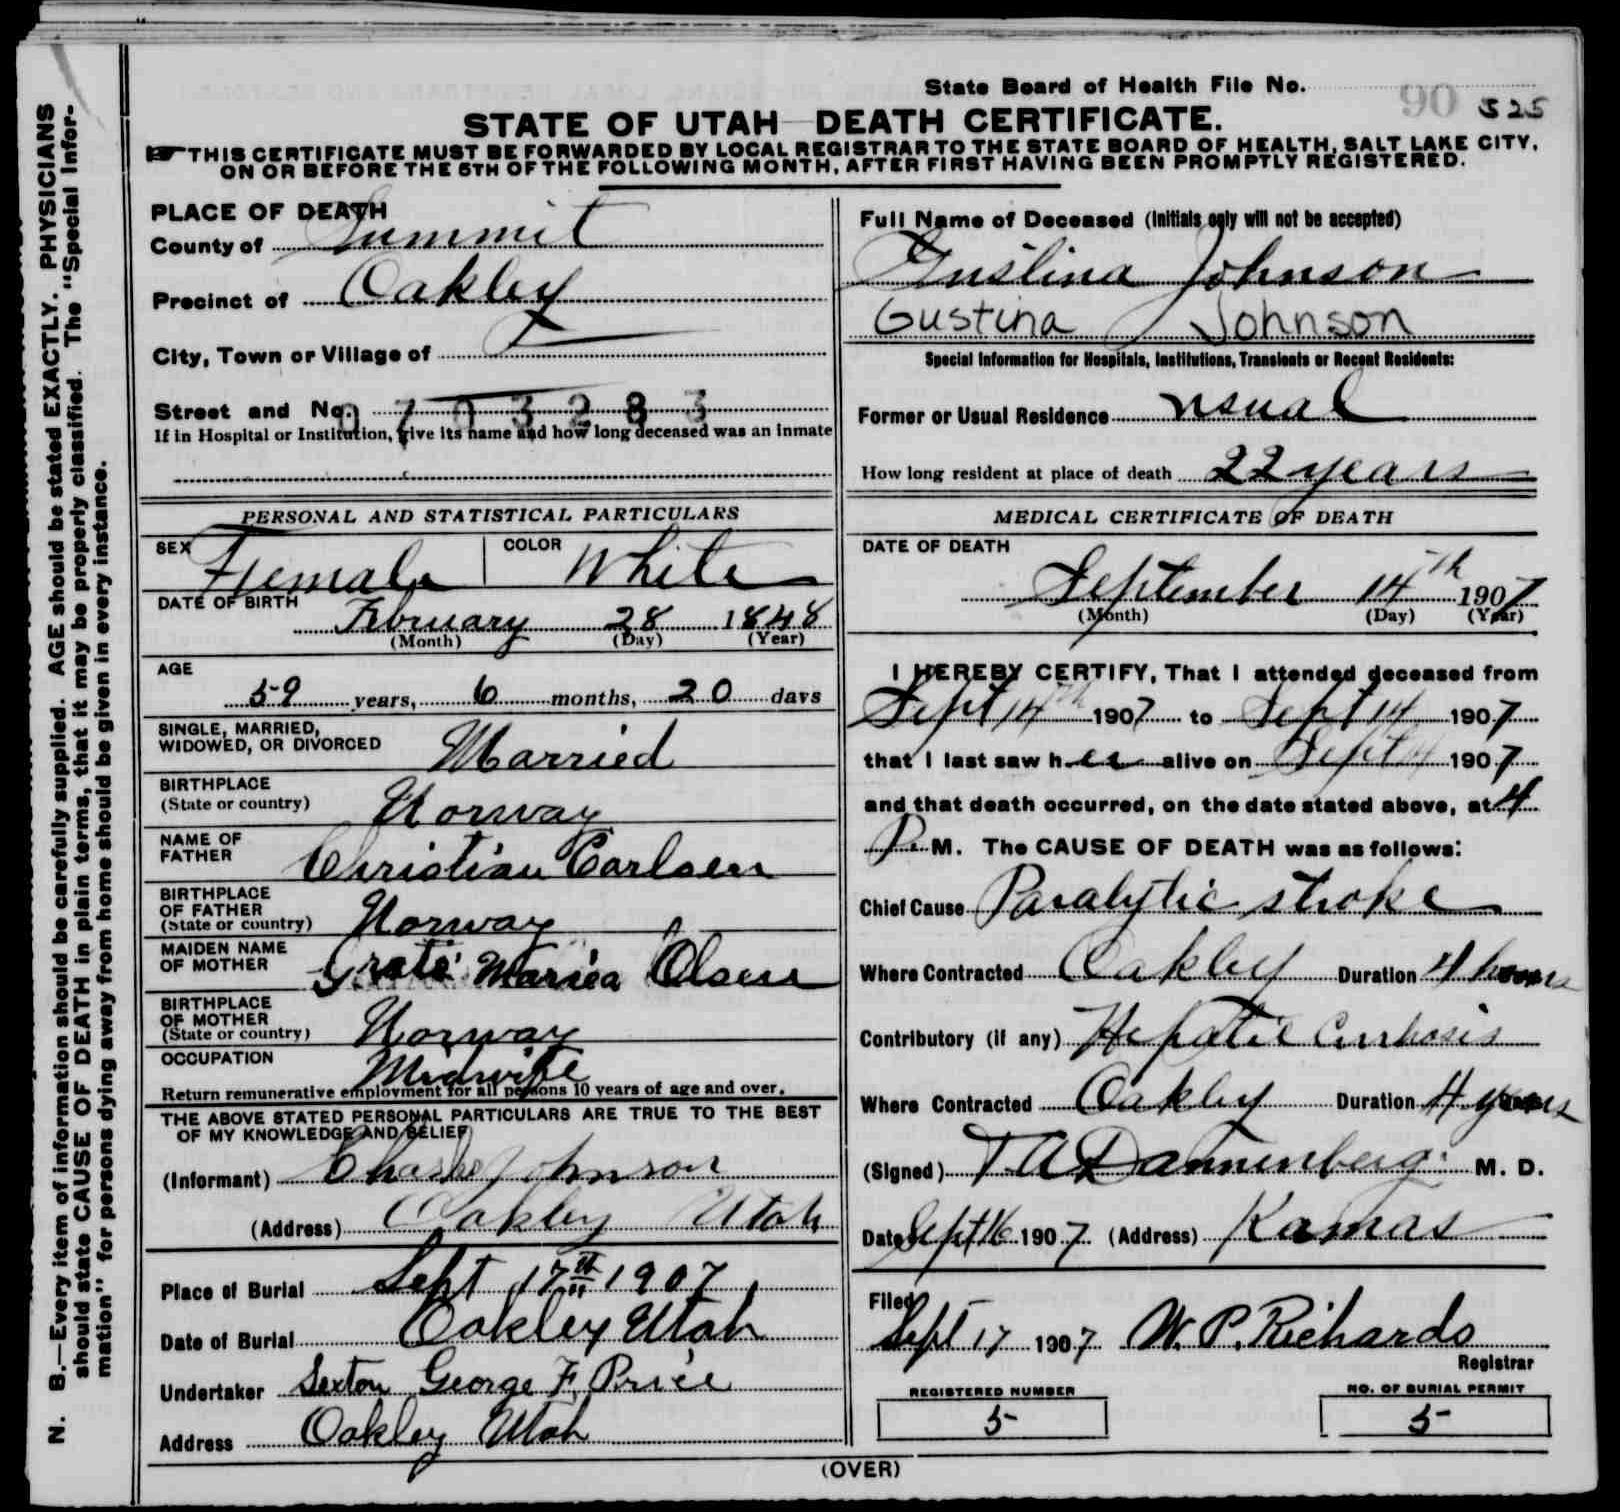 State Board of Health File No. 90 525
STATE OF UTAH—DEATH CERTIFICATE.
THIS CERTIFICATE MUST BE FORWARDED BY LOCAL REGISTRAR TO THE STATE BOARD OF HEALTH, SALT LAKE CITY,
ON OR BEFORE THE 5TH OF THE FOLLOWING MONTH, AFTER FIRST HAVING BEEN PROMPTLY REGISTERED.
N. B.—Every item of information should be carefully supplied. AGE should be stated EXACTLY. PHYSICIANS
should state CAUSE OF DEATH in plain terms, that it may be properly classified. The "Special Infor-
mation" for persons dying away from home should be given in every instance.
PLACE OF DEATH
County of Summit
Precinct of Oakley
City, Town or Village of
Street and No. 0703283
If in Hospital or Institution, give its name and how long deceased was an inmate
PERSONAL AND STATISTICAL PARTICULARS
SEX Female COLOR White
DATE OF BIRTH
February 28 1848
(Month) (Day) (Year)
AGE
59 years, 6 months, 20 days
SINGLE, MARRIED,
WIDOWED, OR DIVORCED Married
BIRTHPLACE
(State or country) Norway
NAME OF
FATHER Christian Carlsen
BIRTHPLACE
OF FATHER
(State or country) Norway
MAIDEN NAME
OF MOTHER Grate Mariea Olsen
BIRTHPLACE
OF MOTHER
(State or country) Norway
OCCUPATION Midwife
Return remunerative employment for all persons 10 years of age and over.
THE ABOVE STATED PERSONAL PARTICULARS ARE TRUE TO THE BEST
OF MY KNOWLEDGE AND BELIEF
(Informant) Charles Johnson
(Address) Oakley Utah
Place of Burial Sept 17th 1907
Date of Burial Oakley Utah
Undertaker Sexton George F. Price
Address Oakley Utah
Full Name of Deceased (Initials only will not be accepted)
Gustina Johnson
Gustina Johnson
Special Information for Hospitals, Institutions, Transients or Recent Residents:
Former or Usual Residence usual
How long resident at place of death 22 years
MEDICAL CERTIFICATE OF DEATH
DATE OF DEATH
September 14th 1907
(Month) (Day) (Year)
I HEREBY CERTIFY, That I attended deceased from
Sept 14th 1907 to Sept 14 1907
that I last saw her alive on Sept 14 1907
and that death occurred, on the date stated above, at 4
P. M. The CAUSE OF DEATH was as follows:
Chief Cause Paralytic stroke
Where Contracted Oakley Duration 4 hours
Contributory (if any) Hepatic Cirrhosis
Where Contracted Oakley Duration 4 years
(Signed) T A Dannenberg. M. D.
Date Sept 16 1907 (Address) Kamas
Filed
Sept 17 1907 W. P. Richards
Registrar
REGISTERED NUMBER
5
NO. OF BURIAL PERMIT
5
(OVER)